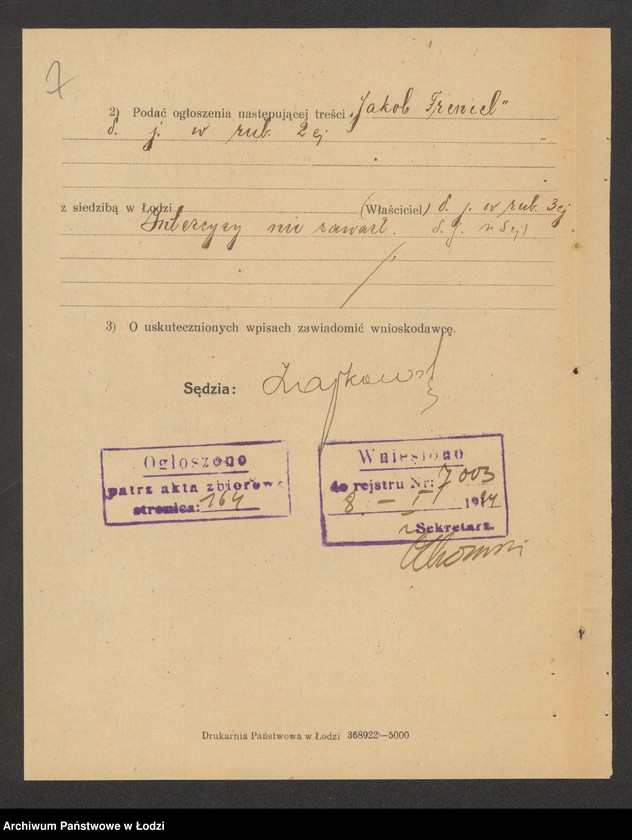 7
2) Podać ogłoszenia następującej treści „Jakob Frenciel"
d. j. w rub. 2ej
z siedzibą w Łodzi (Właściciel) d. j. w rub. 3ej
Intercyzy nie zawarł. d. j. w 5ej)
3) O uskutecznionych wpisach zawiadomić wnioskodawcę.
Sędzia:
Ogłoszono
patrz akta zbiorowe
stronica: 164
Wniesiono
do rejstru Nr: 7003
8. — I 19
Sekretarz
Drukarnia Państwowa w Łodzi 368922—5000
Archiwum Państwowe w Łodzi